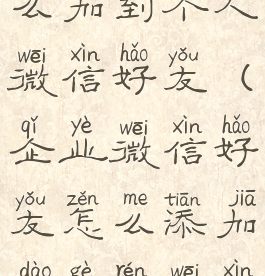 么加到个人
wēi xìn hǎo yǒu
微信好友（
qǐ yè wēi xìn hǎo
企业微信好
yǒu zěn me tiān jiā
友怎么添加
dào gè rén wēi xìn